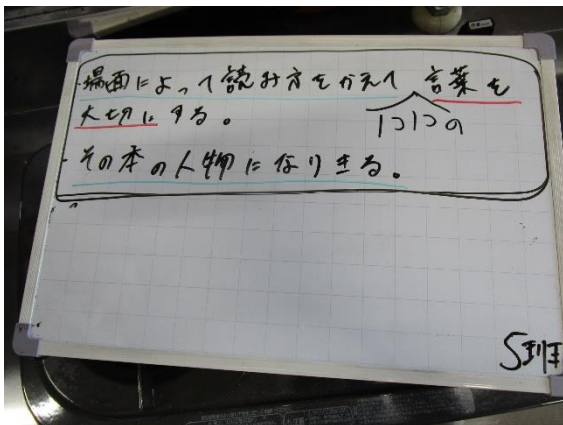 ・場面によって読み方をかえて 言葉を
1つ1つの
大切にする。
・その本の人物になりきる。
5班